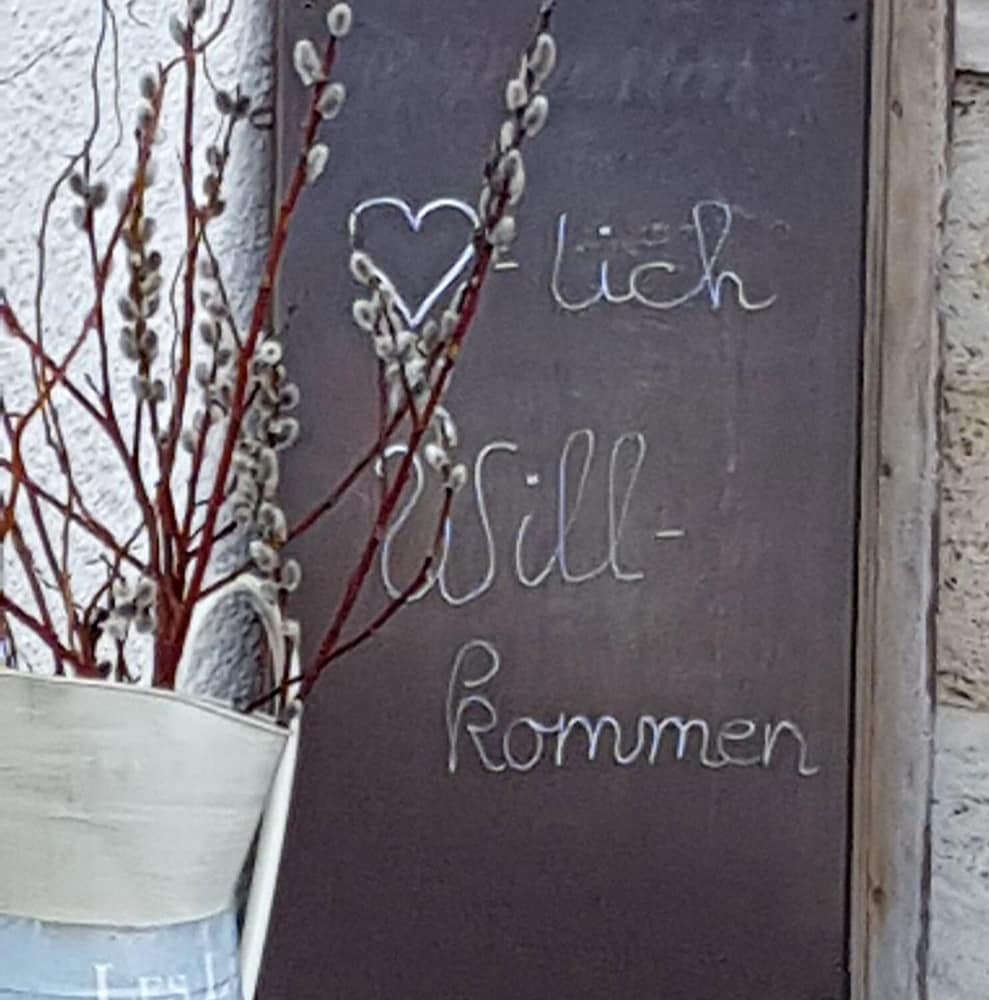 ♡-lich
Will-
kommen
LES